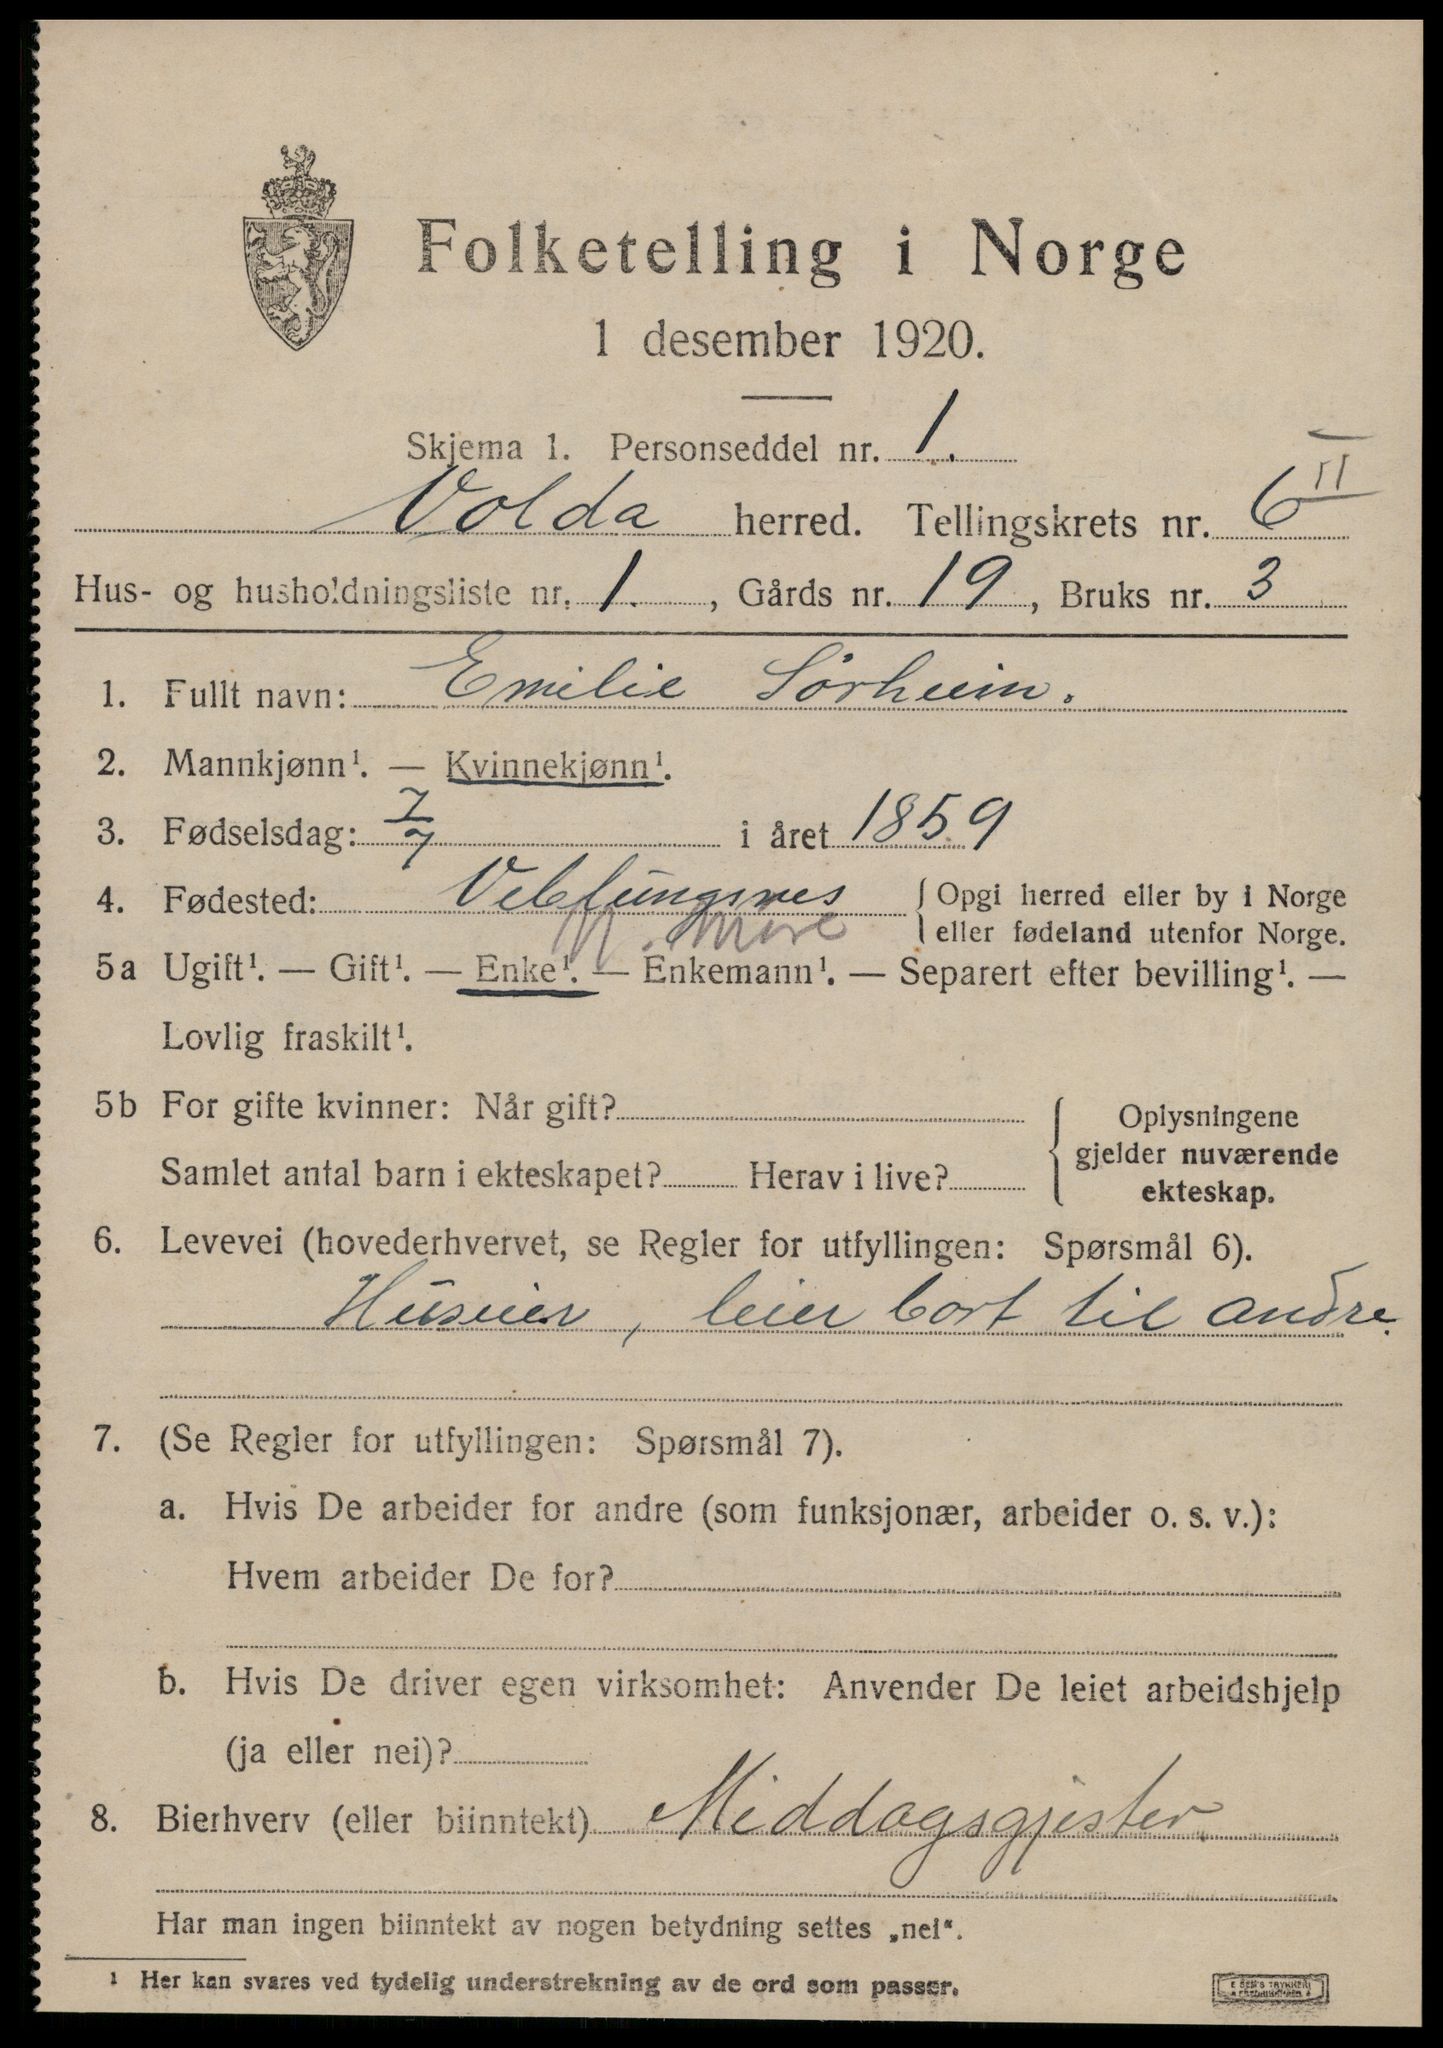 Folketelling i Norge
1 desember 1920.
Skjema 1. Personseddel nr. 1.
Volda herred. Tellingskrets nr. 6 II
Hus- og husholdningsliste nr. 1. , Gårds nr. 19 , Bruks nr. 3
1. Fullt navn: Emilie Sørheim.
2. Mannkjønn¹. — Kvinnekjønn¹.
3. Fødselsdag: 7/7 i året 1859
4. Fødested: Veblungsnes { Opgi herred eller by i Norge
eller fødeland utenfor Norge.
N. Møre
5a Ugift¹. — Gift¹. — Enke¹. — Enkemann¹. — Separert efter bevilling¹. —
Lovlig fraskilt¹.
5b For gifte kvinner: Når gift?
Samlet antal barn i ekteskapet? Herav i live?
{ Oplysningene
gjelder nuværende
ekteskap.
6. Levevei (hovederhvervet, se Regler for utfyllingen: Spørsmål 6).
Huseier, leier bort til andre.
7. (Se Regler for utfyllingen: Spørsmål 7).
a. Hvis De arbeider for andre (som funksjonær, arbeider o. s. v.):
Hvem arbeider De for?
b. Hvis De driver egen virksomhet: Anvender De leiet arbeidshjelp
(ja eller nei)?
8. Bierhverv (eller biinntekt) Middagsgjester.
Har man ingen biinntekt av nogen betydning settes „nei“.
¹ Her kan svares ved tydelig understrekning av de ord som passer.